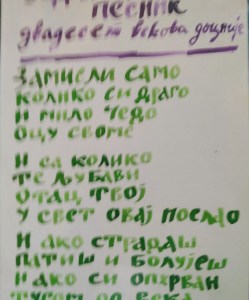 ПЕСНИК
двадесет векова доцније
ЗАМИСЛИ САМО
КОЛИКО СИ ДРАГО
И МИЛО ЧЕДО
ОЦУ СВОМЕ
И СА КОЛИКО
ТЕ ЉУБАВИ
ОТАЦ ТВОЈ
У СВЕТ ОВАЈ ПОСЛАО
И АКО СТРАДАШ
ПАТИШ И БОЛУЈЕШ
И АКО СИ ОПХРВАН